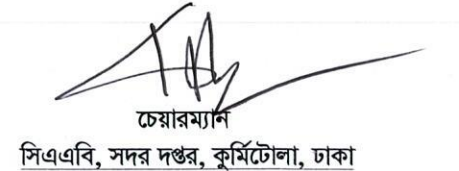 চেয়ারম্যান
সিএএবি, সদর দপ্তর, কুর্মিটোলা, ঢাকা